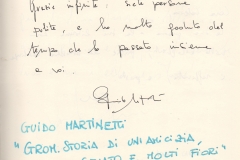 Grazie infinite: siete persone
pulite, e ho molto goduto del
tempo che ho passato insieme
a voi.
GUIDO MARTINETTI
"GROM. STORIA DI UN'AMICIZIA,
E MOLTI FIORI"